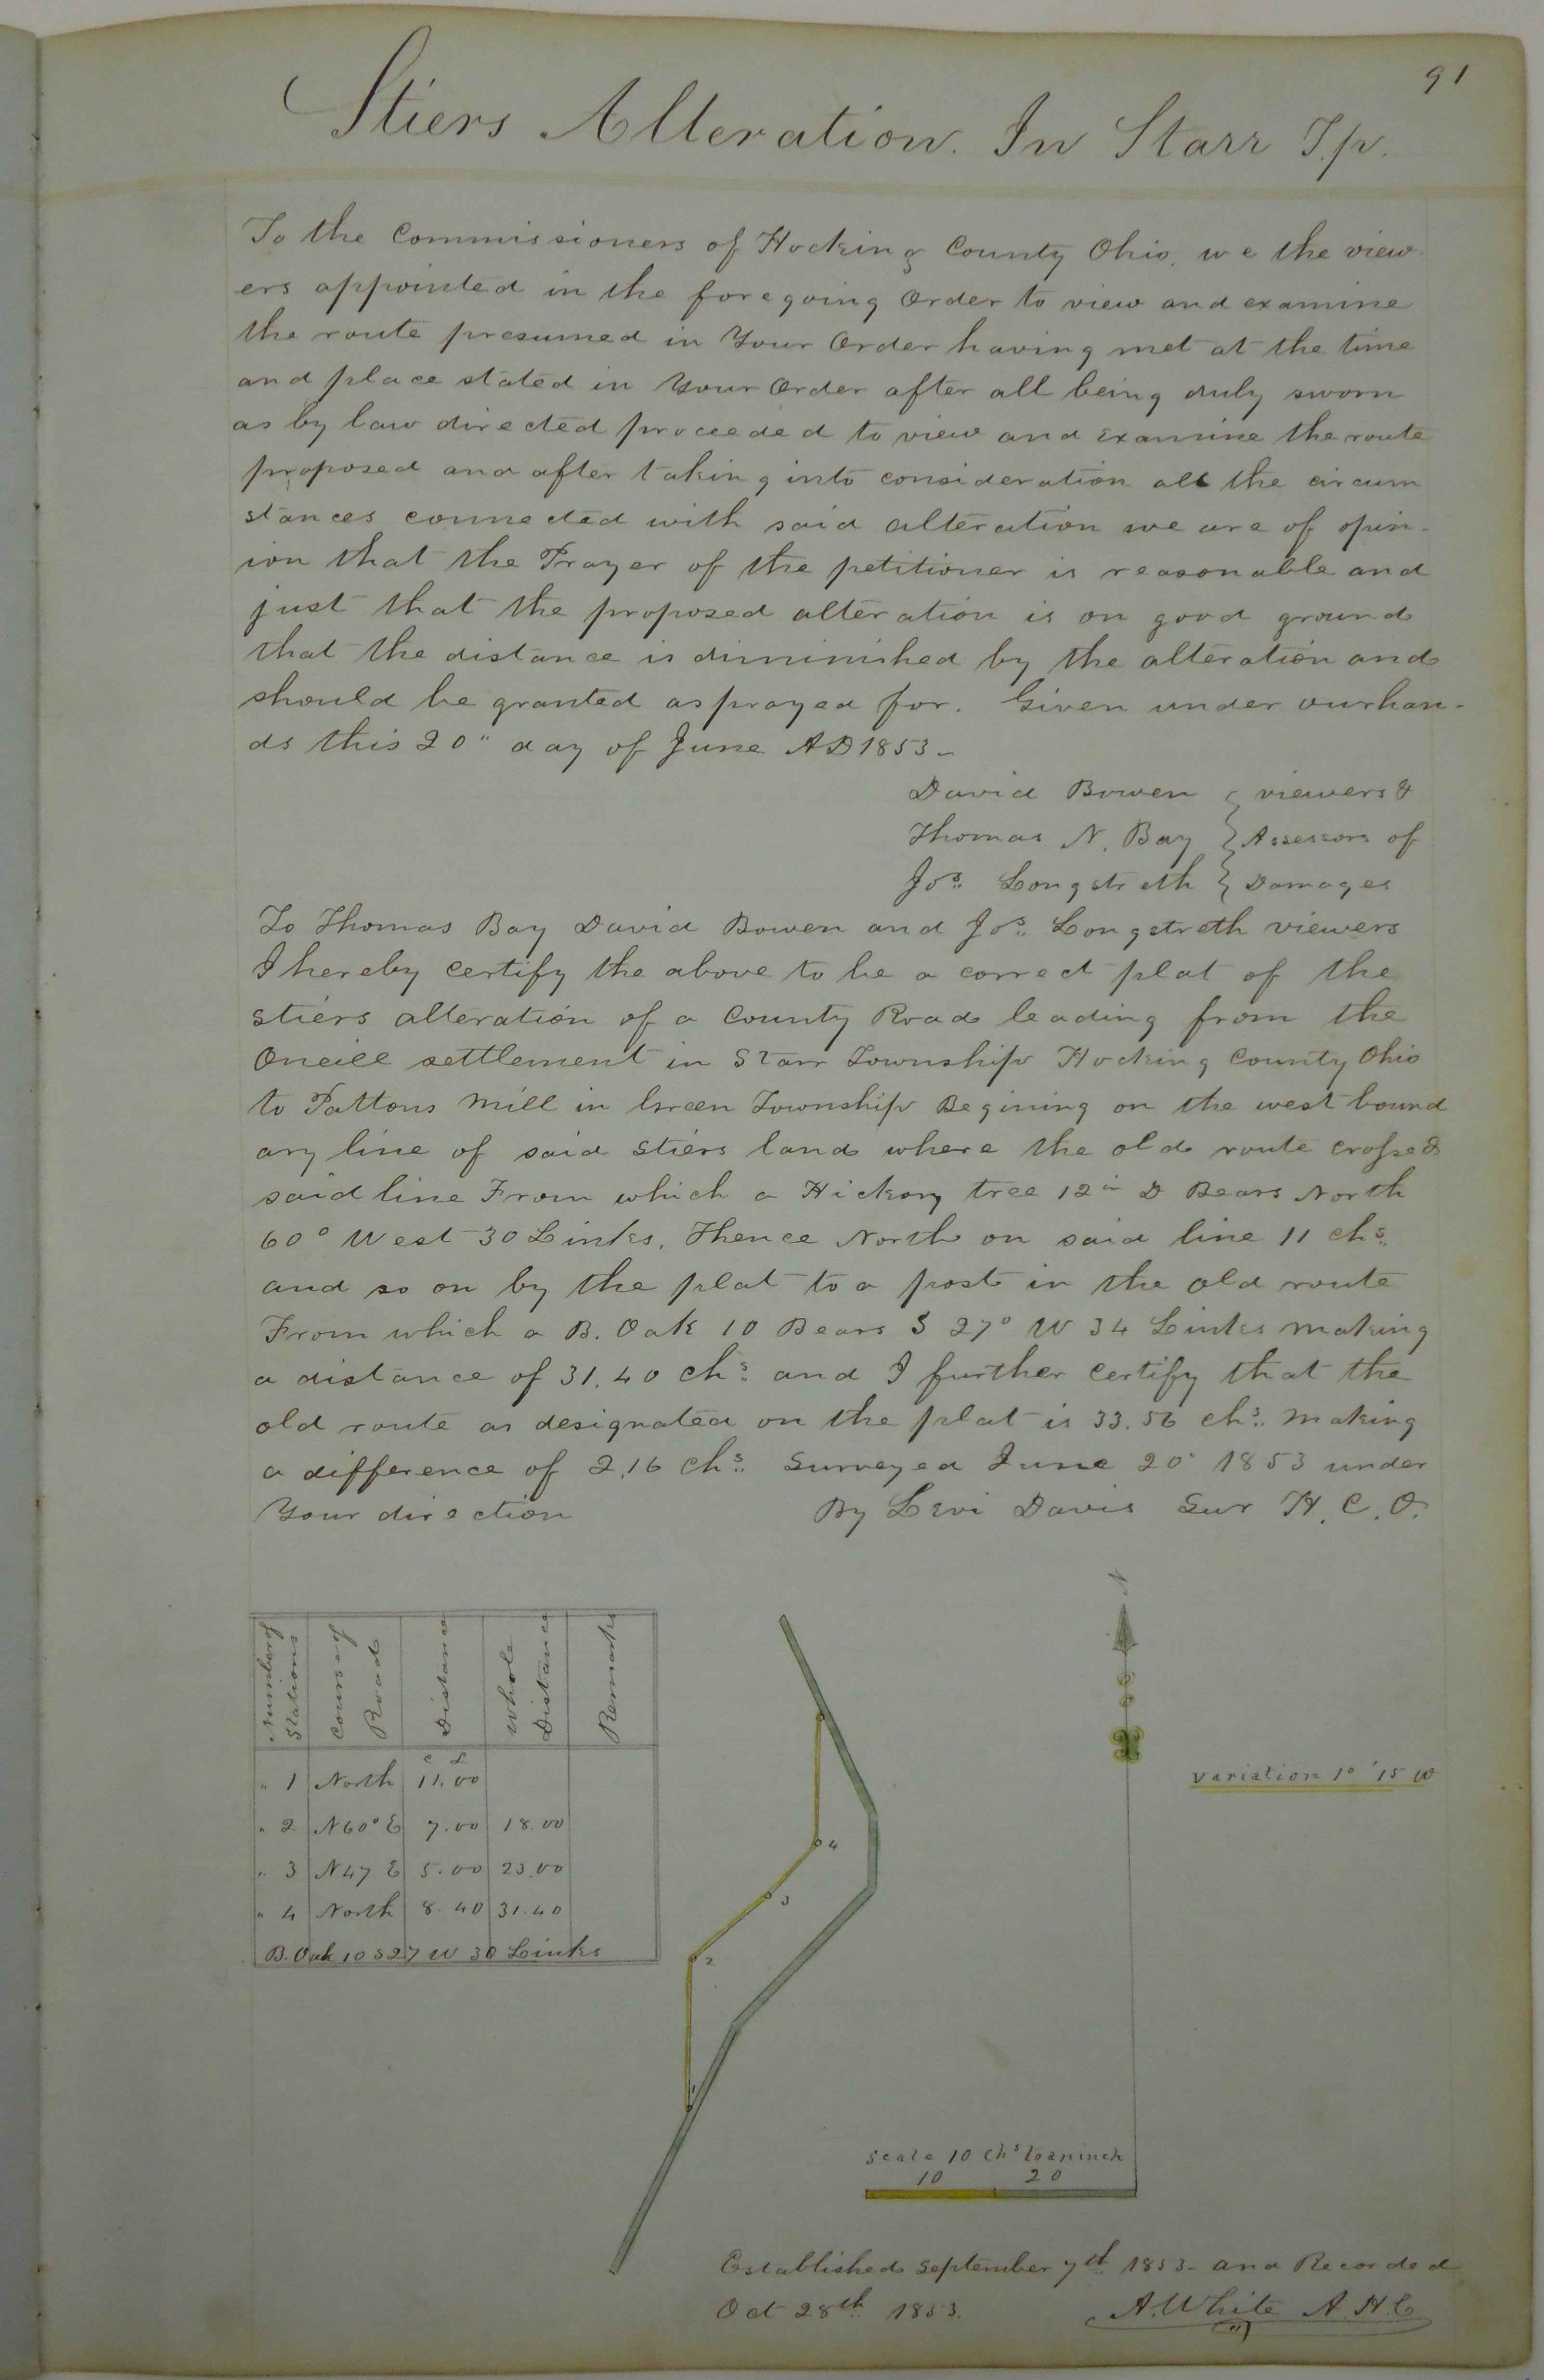 91
Stiers Alteration. In Starr T.p.
To the Commissioners of Hocking County Ohio. we the view-
ers appointed in the foregoing Order to view and examine
the route presumed in Your Order having met at the time
and place stated in Your Order after all being duly sworn
as by law directed proceeded to view and Examine the route
proposed and after taking into consideration all the circum
stances connected with said alteration we are of opin-
ion that the Prayer of the petitioner is reasonable and
just that the proposed alteration is on good ground
that the distance is diminished by the alteration and
should be granted as prayed for. Given under our han-
ds this 20" day of June AD 1853-
David Bowen } viewers &
Thomas N. Bay } Assessors of
Jos. Longstreth } Damages
To Thomas Bay David Bowen and Jos. Longstreth viewers
I hereby certify the above to be a correct plat of the
Stiers alteration of a County Road leading from the
Oneill settlement in Starr Township Hocking County Ohio
to Pattons Mill in Green Township Begining on the west bound
ary line of said Stiers land where the old route crossed
said line From which a Hickory tree 12 in D Bears North
60° West 30 Links. Thence North on said line 11 chs.
and so on by the plat to a post in the old route
From which a B. Oak 10 Bears S 27° W 34 Links making
a distance of 31.40 chs. and I further certify that the
old route as designated on the plat is 33.56 chs. making
a difference of 2.16 chs. Surveyed June 20 1853 under
Your direction By Levi Davis Sur H. C. O.
Number of Stations | Course of Road | Distance | Whole Distance | Remarks
C L
" 1 North 11.00
" 2 N 60° E 7.00 18.00
" 3 N 47 E 5.00 23.00
" 4 North 8.40 31.40
B. Oak 10 S 27 W 30 Links
N
variation 1° '15 W
4
3
2
1
Scale 10 Chs to an inch
10 20
Established September 7th 1853- and Recorded
Oct 28th 1853. A. White A. H. C